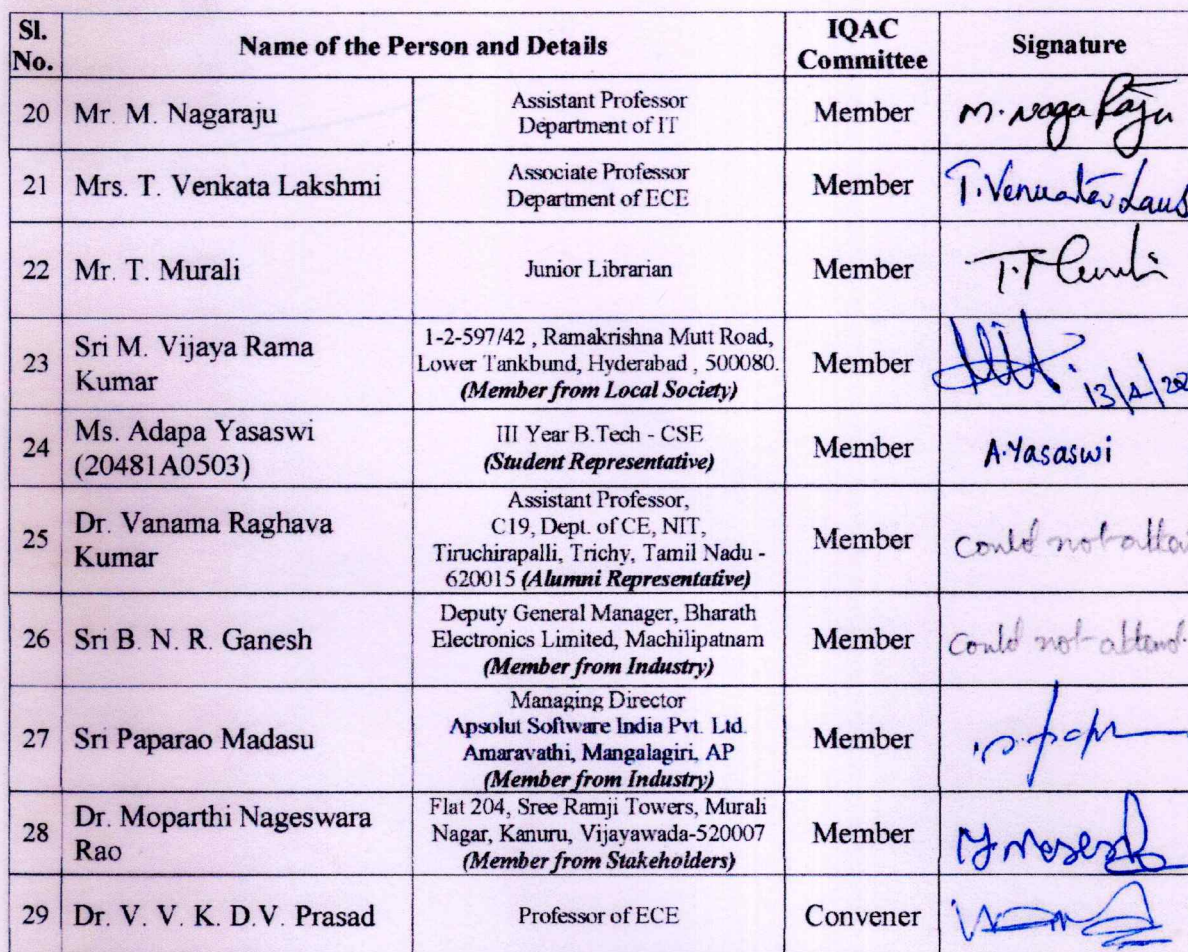 Sl. No. Name of the Person and Details IQAC Committee Signature
20 Mr. M. Nagaraju Assistant Professor Department of IT Member M. Naga Raju
21 Mrs. T. Venkata Lakshmi Associate Professor Department of ECE Member
22 Mr. T. Murali Junior Librarian Member
23 Sri M. Vijaya Rama Kumar 1-2-597/42 , Ramakrishna Mutt Road, Lower Tankbund, Hyderabad , 500080. (Member from Local Society) Member 13/4/202
24 Ms. Adapa Yasaswi (20481A0503) III Year B.Tech - CSE (Student Representative) Member A.Yasaswi
25 Dr. Vanama Raghava Kumar Assistant Professor, C19, Dept. of CE, NIT, Tiruchirapalli, Trichy, Tamil Nadu - 620015 (Alumni Representative) Member Could not atten
26 Sri B. N. R. Ganesh Deputy General Manager, Bharath Electronics Limited, Machilipatnam (Member from Industry) Member Could not attend.
27 Sri Paparao Madasu Managing Director Apsolut Software India Pvt. Ltd. Amaravathi, Mangalagiri, AP (Member from Industry) Member
28 Dr. Moparthi Nageswara Rao Flat 204, Sree Ramji Towers, Murali Nagar, Kanuru, Vijayawada-520007 (Member from Stakeholders) Member
29 Dr. V. V. K. D.V. Prasad Professor of ECE Convener